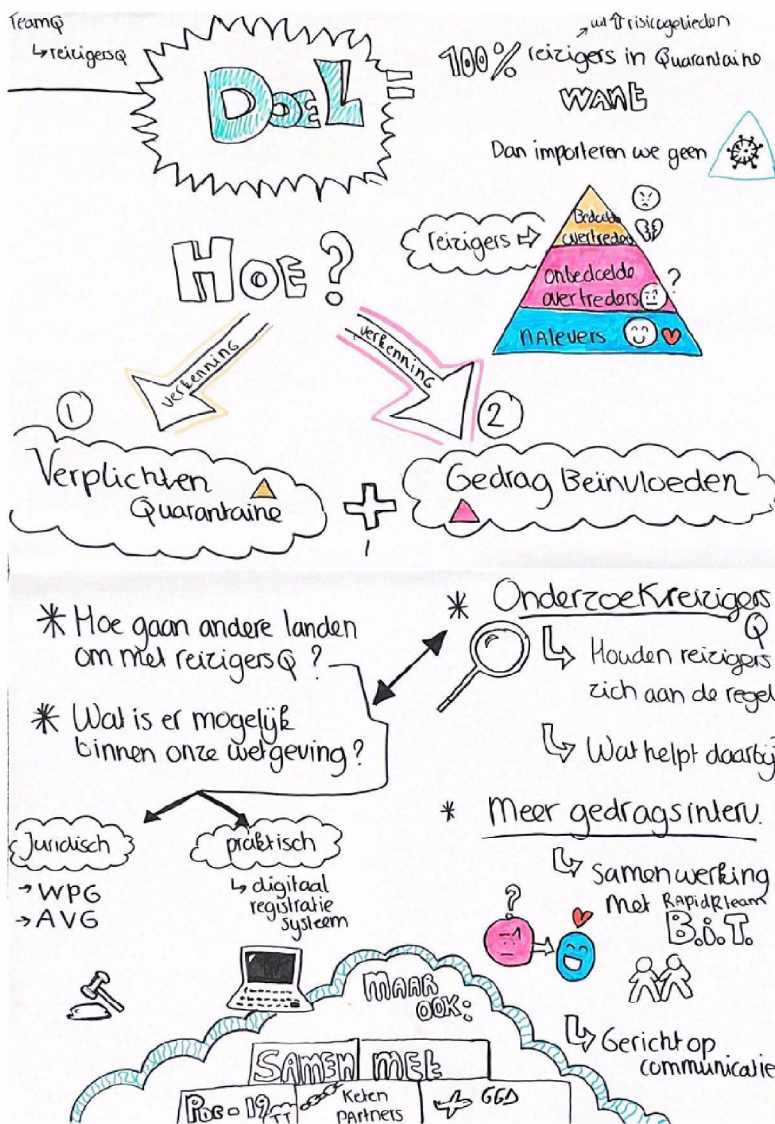 TeamQ
↳ reizigersQ
DOEL =
→ uit ⇧ risicogebieden
100% reizigers in Quarantaine
WANT
Dan importeren we geen
reizigers ⇨
Bedoelde
overtreders
Onbedoelde
overtreders
?
NAlevers
HOE?
verkenning
verkenning
1
2
Verplichten
Quarantaine
+
Gedrag Beïnvloeden
* Hoe gaan andere landen
om met reizigersQ?
* Wat is er mogelijk
binnen onze wetgeving?
Juridisch
→ WPG
→ AVG
praktisch
↳ digitaal
registratie
systeem
* Onderzoek reizigers
Q
↳ Houden reizigers
zich aan de regel
↳ Wat helpt daarbij
* Meer gedragsinterv.
↳ Samenwerking
met RApidRteam
B.i.T.
?
↳ Gericht op
communicatie
MAAR
OOK:
SAMEN MET
PDC-19
Keten
PArtners
GGD